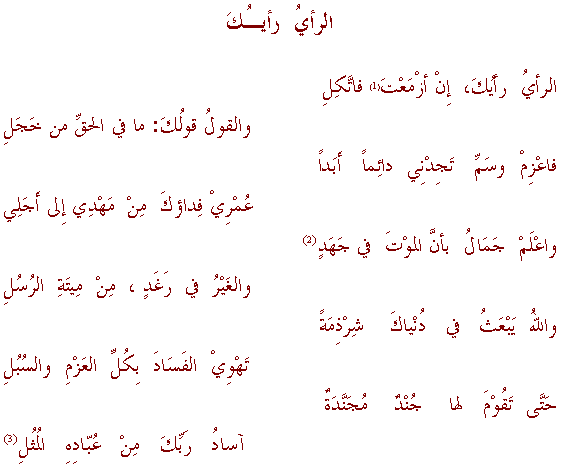 الرأيُ رأيـــُـكَ
الرأيُ رأْيُكَ، إِنْ أزْمَعْتَ(1) فاتَّكِلِ
والقولُ قولُكَ: ما في الحقِّ من خَجَلِ
فاعْزِمْ وسَمِّ تَجِدْنِي دائِماً أَبَداً
عُمْرِيْ فِداؤكَ مِنْ مَهْدِي إِلى أَجَلِي
واعْلَمْ جَمَالُ بأنَّ الموْتَ في جَهَدٍ(2)
والغَيْرُ في رَغَدٍ ، مِنْ مِيتَةِ الرُسُلِ
واللهُ يَبْعَثُ في دُنْياكَ شِرْذِمَةً
تَهْوِيْ الفَسَادَ بِكُلِّ العَزْمِ والسُبُلِ
حَتَّى تَقُوْمَ لها جُنْدٌ مُجَنَّدَةٌ
آسادُ رَبِّكَ مِنْ عُبّادِهِ المُثُلِ(3)